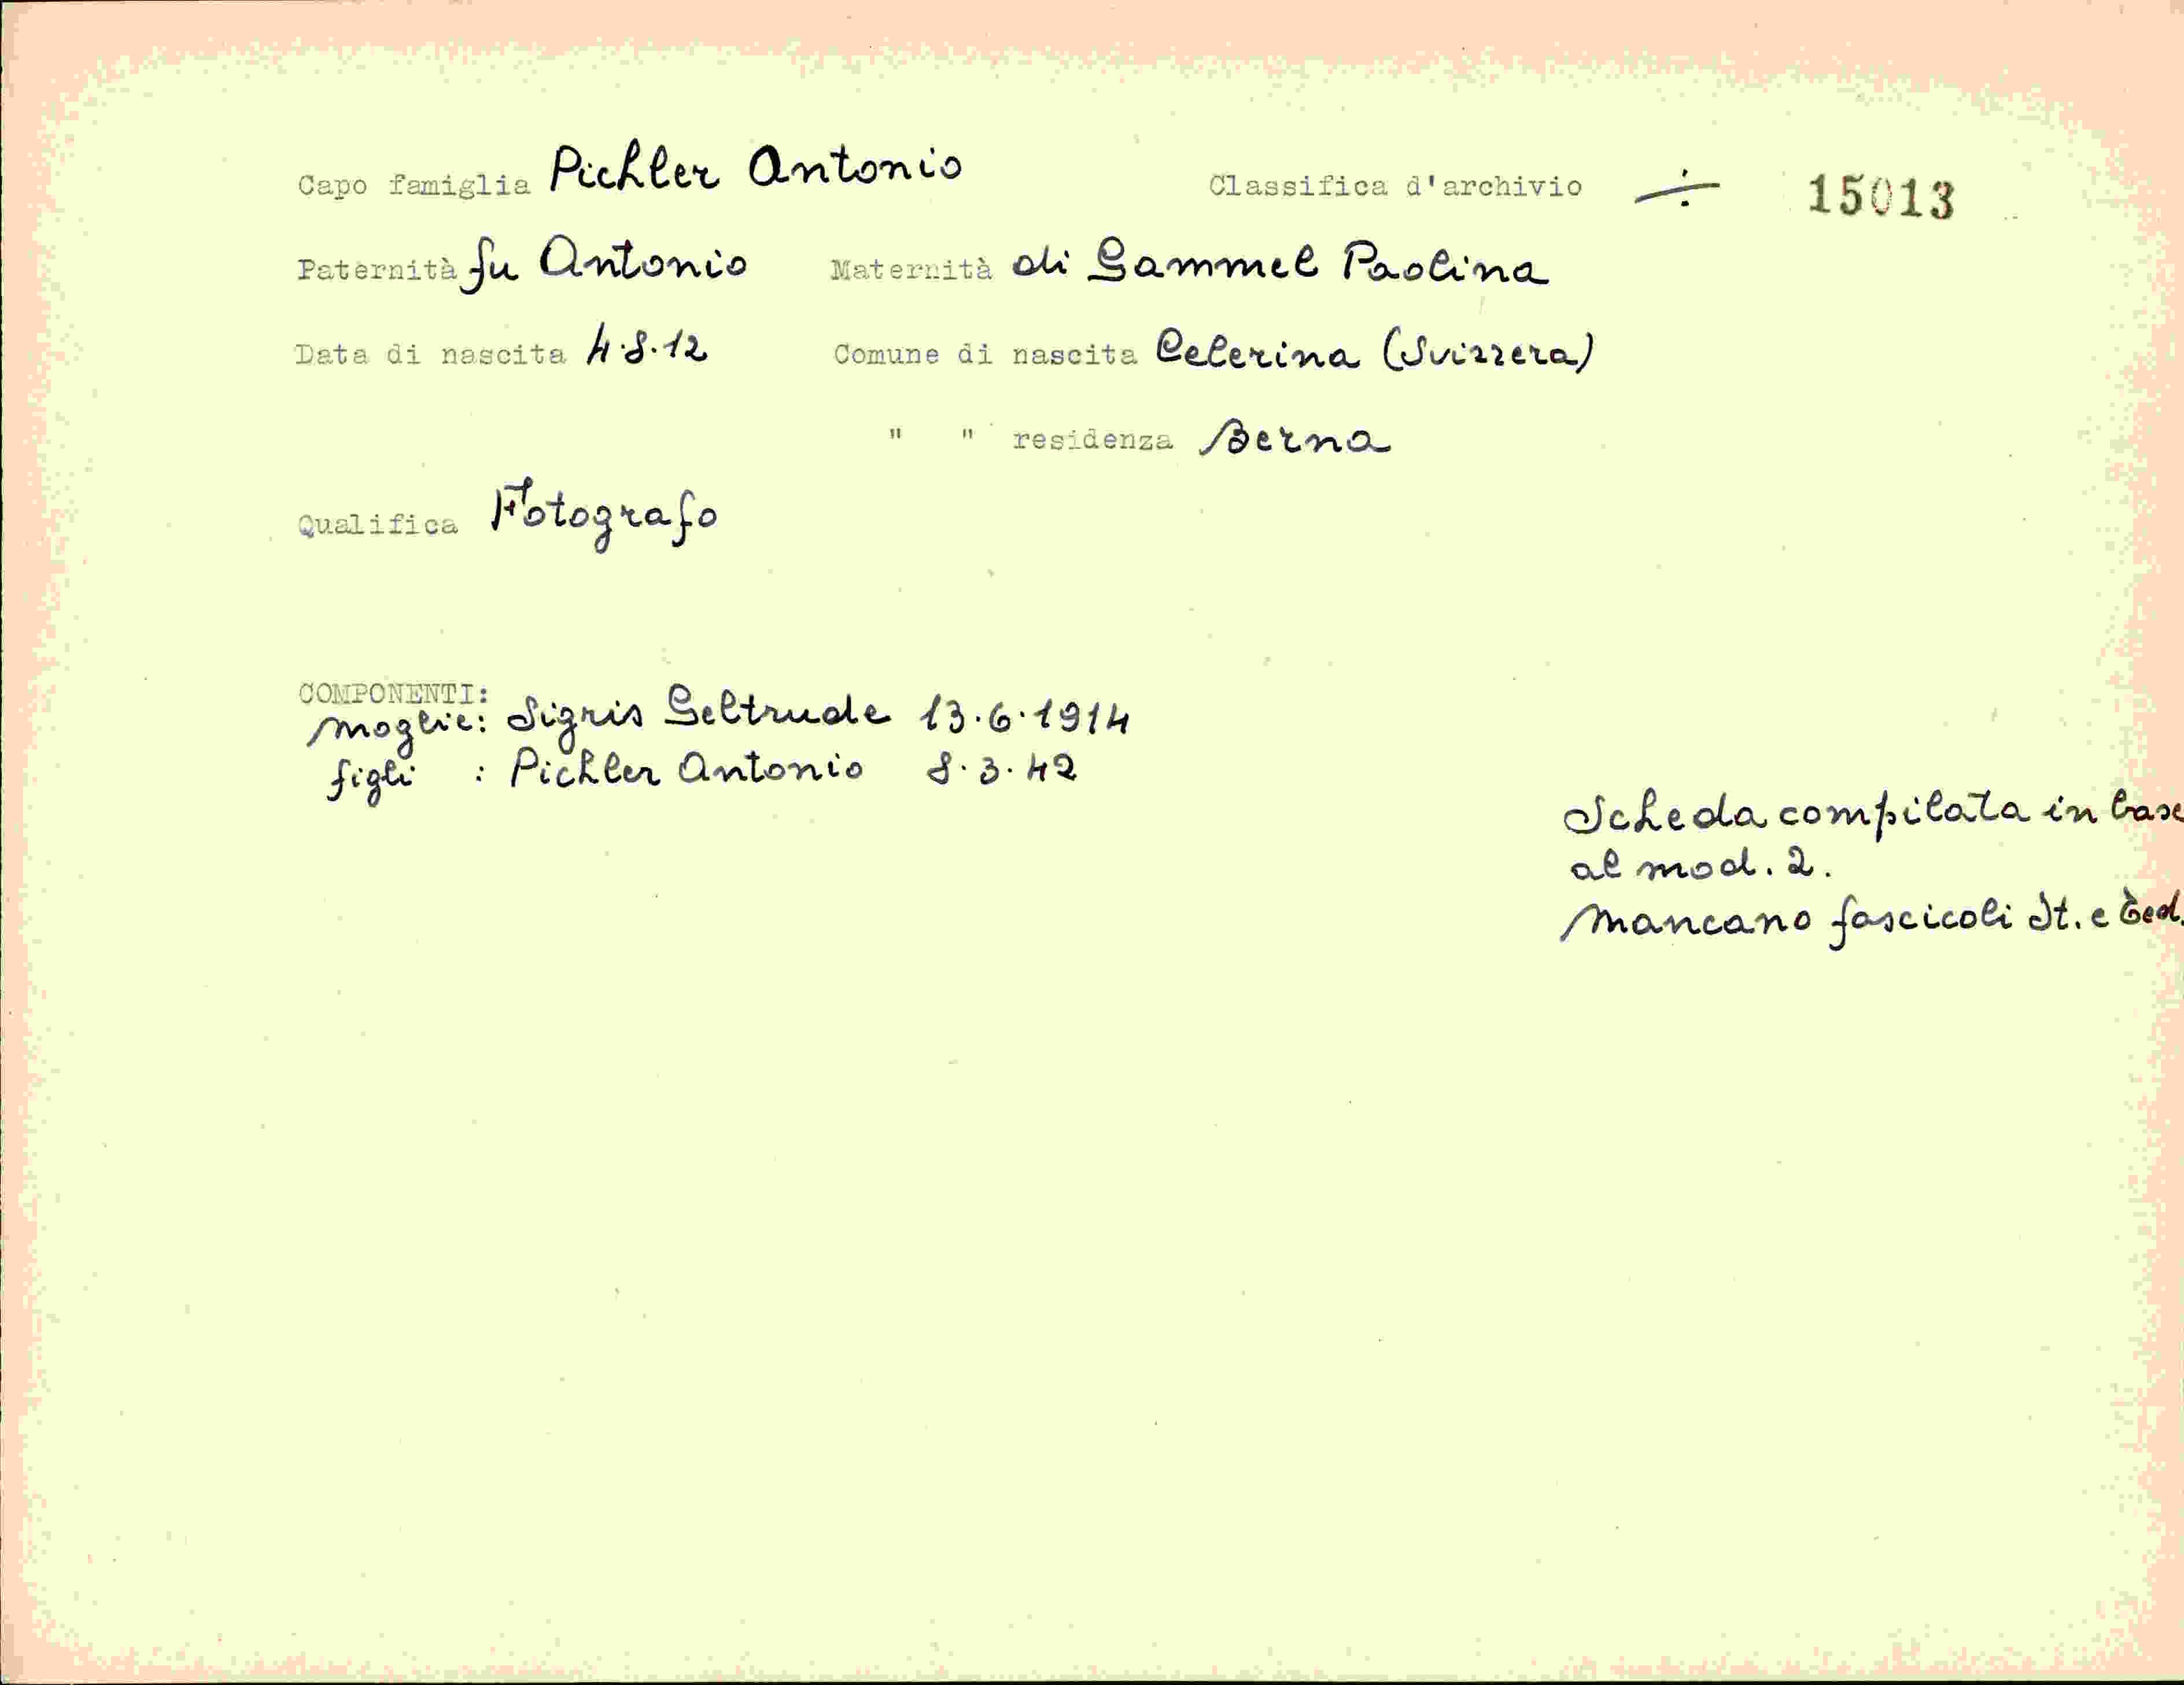 Capo famiglia Pichler Antonio Classifica d'archivio ÷ 15013
Paternità fu Antonio Maternità di Gammel Paolina
Data di nascita 4.8.12 Comune di nascita Celerina (Svizzera)
" " residenza Berna
Qualifica Fotografo
COMPONENTI:
moglie: Sigris Geltrude 13.6.1914
figli : Pichler Antonio 8.3.42
Scheda compilata in base
al mod. 2.
Mancano fascicoli It. e Ted.